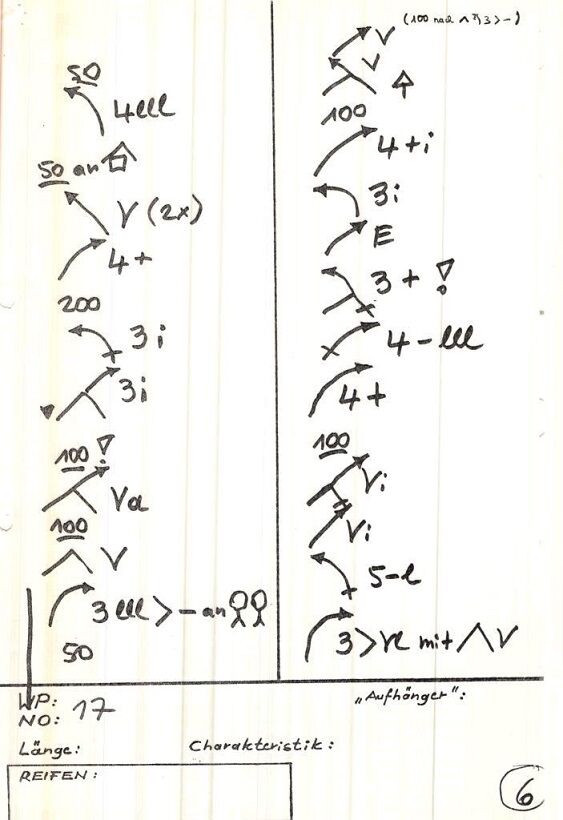 50
4lll
50 an
V (2x)
4+
200
3i
3i
100 !
Va
100
V
3lll>-an
50
(100 nach ∧ 3>-)
V
V
100
4+i
3i
E
3+ !
4-lll
4+
100
Vi
Vi
5-l
3> mit ∧V
WP:
NO: 17
Länge:
Charakteristik:
REIFEN:
„Aufhänger":
6